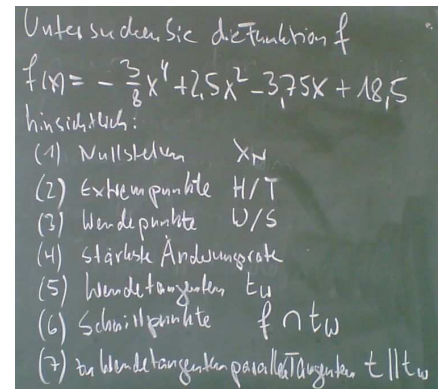 Untersuchen Sie die Funktion f
f(x) = - 3/8 x⁴ + 2,5x² - 3,75x + 18,5
hinsichtlich:
(1) Nullstellen x_N
(2) Extrempunkte H/T
(3) Wendepunkte W/S
(4) stärkste Änderungsrate
(5) Wendetangenten t_W
(6) Schnittpunkte f ∩ t_W
(7) zu Wendetangenten parallele Tangenten t || t_W